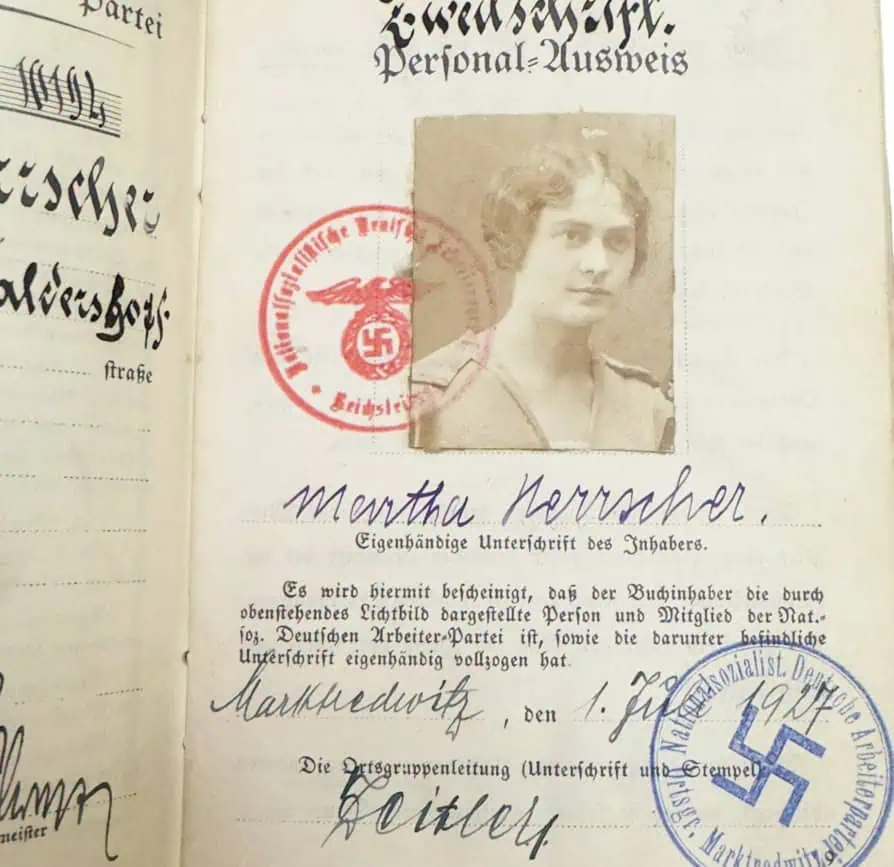 Partei
10194
straße
meister
Zweitschrift.
Personal-Ausweis
Nationalsozialistische Deutsche Arbeiterpartei
Reichsleitung
Martha Herrscher.
Eigenhändige Unterschrift des Inhabers.
Es wird hiermit bescheinigt, daß der Buchinhaber die durch
obenstehendes Lichtbild dargestellte Person und Mitglied der Nat.-
soz. Deutschen Arbeiter-Partei ist, sowie die darunter befindliche
Unterschrift eigenhändig vollzogen hat.
Marktredwitz, den 1. Juli 1927
Die Ortsgruppenleitung (Unterschrift und Stempel):
Zeitler
Nationalsozialist. Deutsche Arbeiterpartei
Ortsgr. Marktredwitz